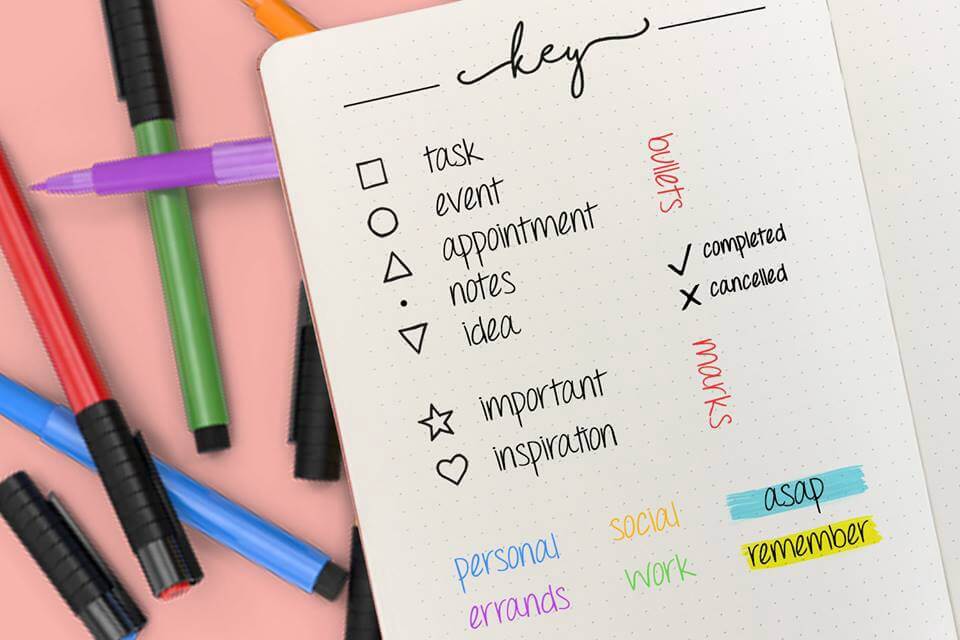 key
task
event
appointment
notes
idea
bullets
completed
cancelled
important
inspiration
marks
personal
social
asap
errands
work
remember